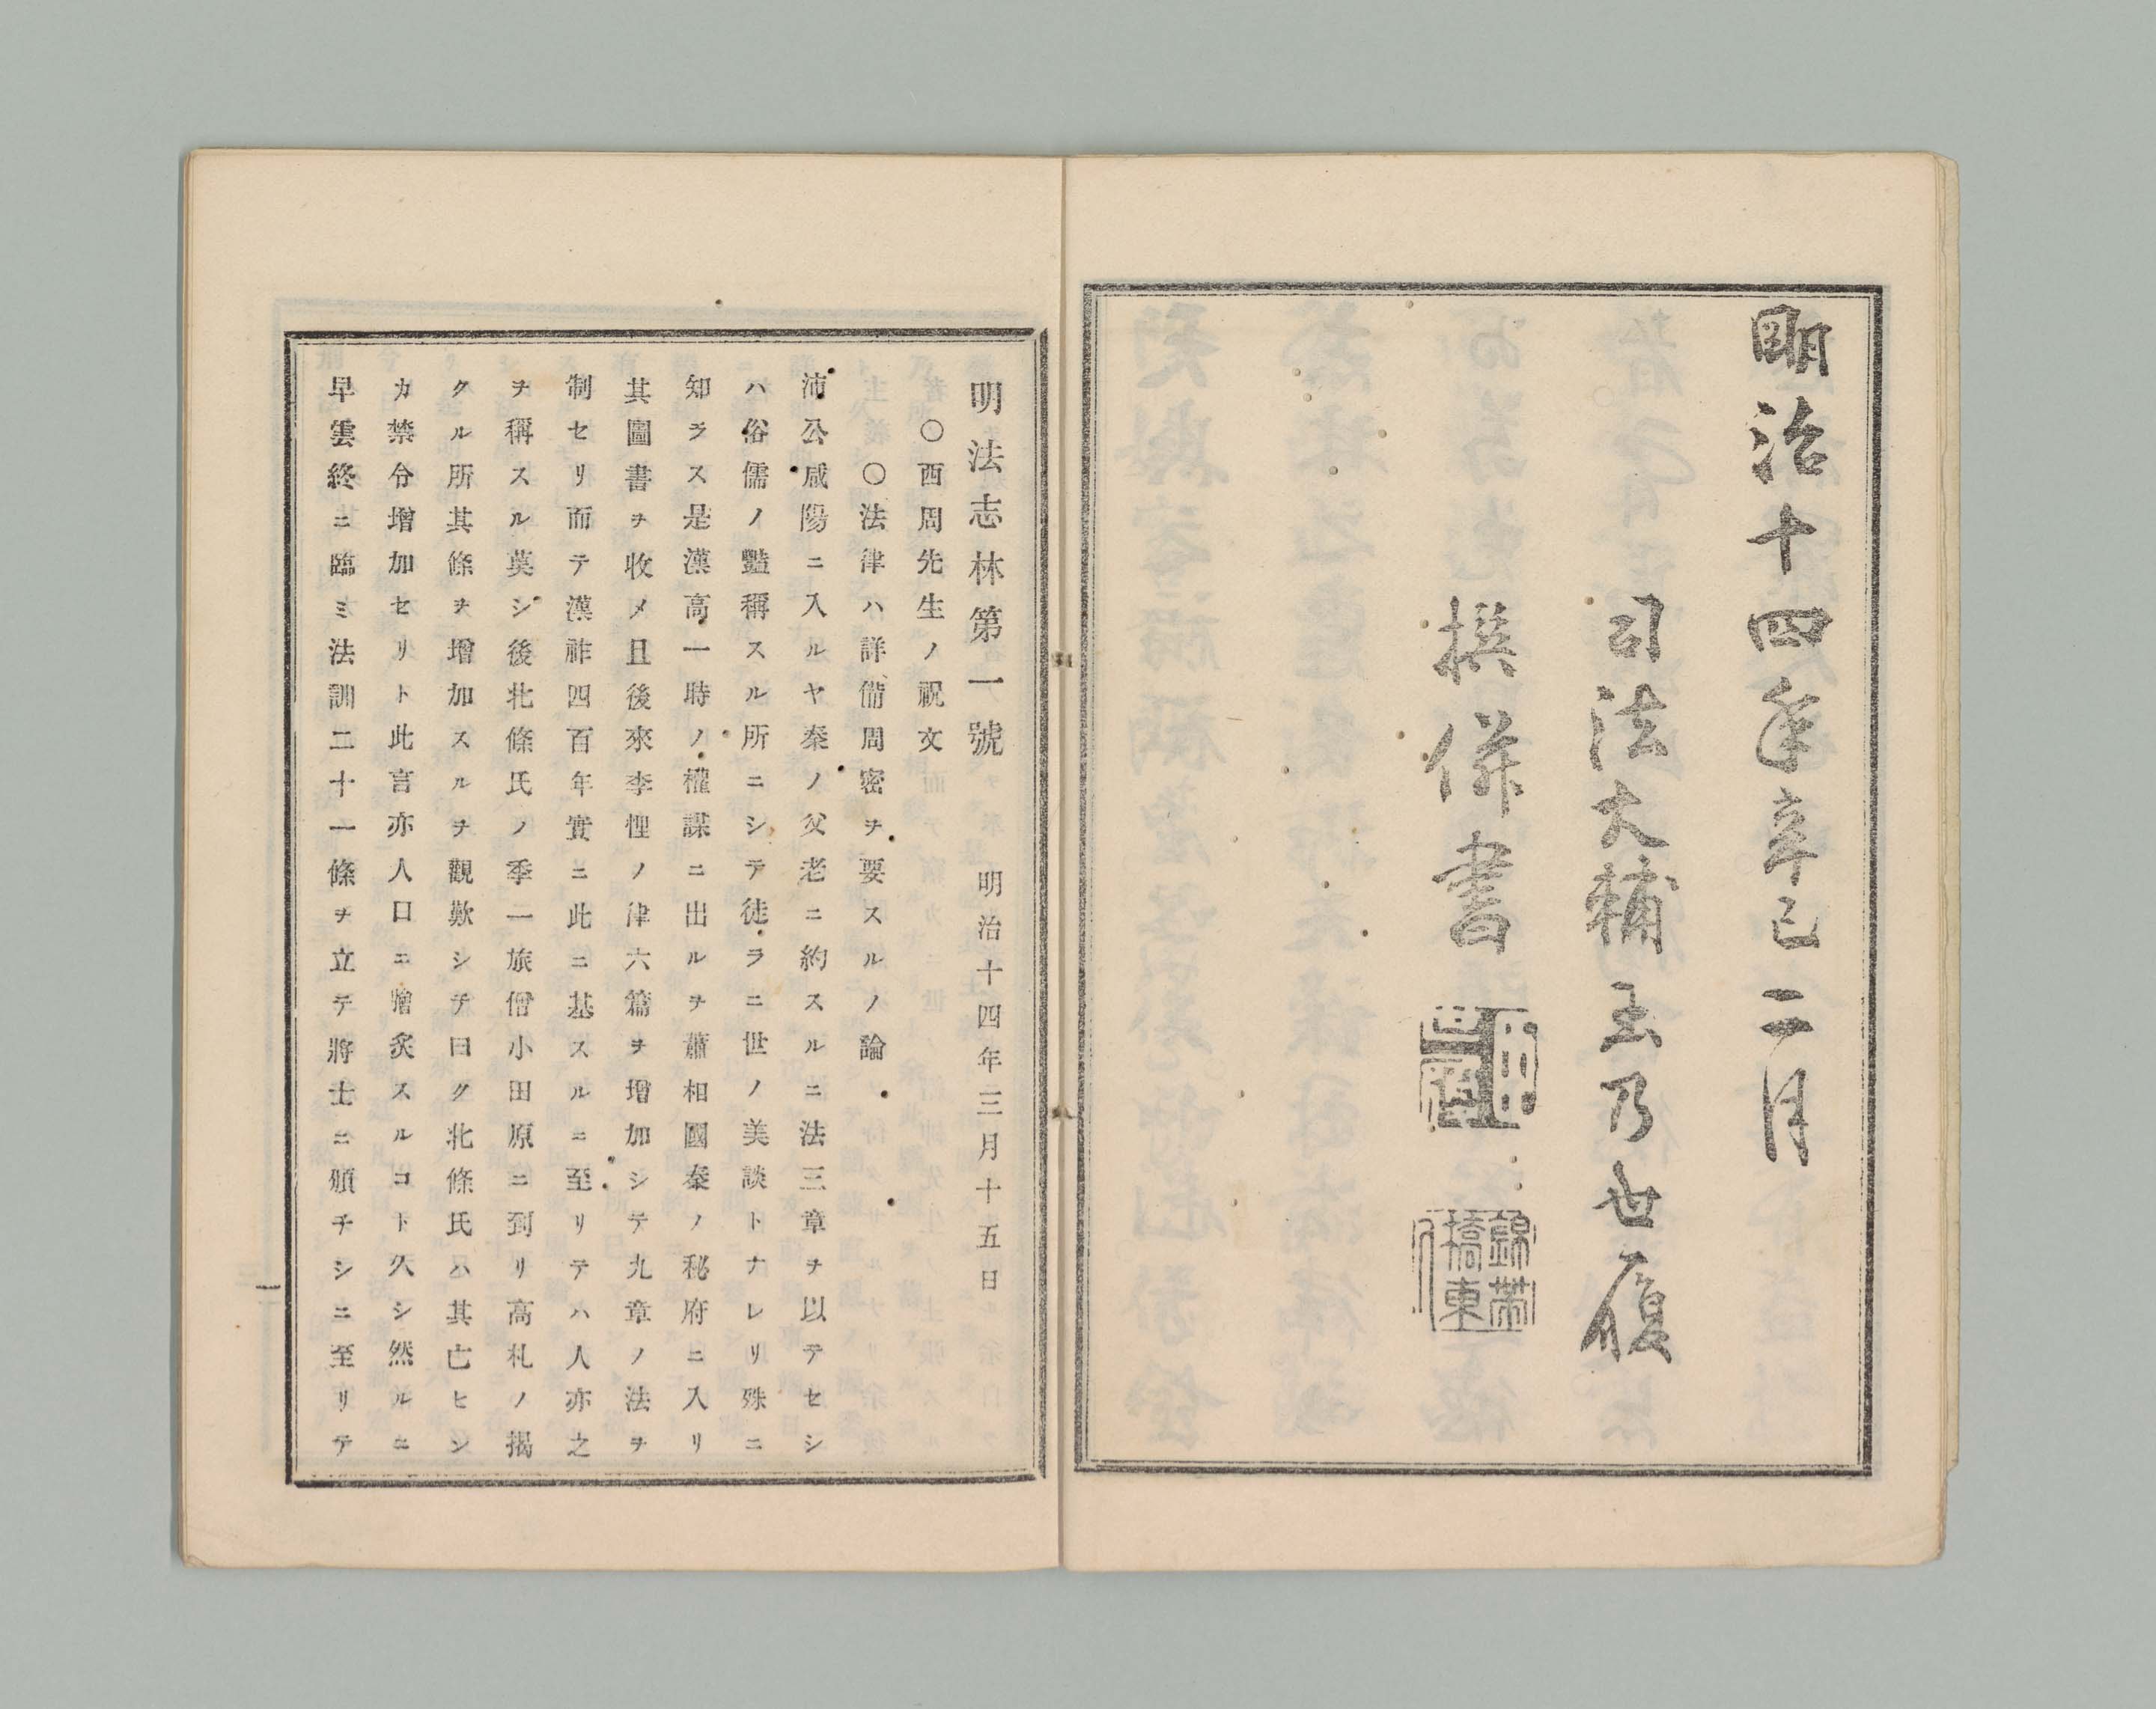 明治十四年辛巳二月
司法大輔玉乃世履
撰併書
錦帯橋東
明法志林第一號　明治十四年三月十五日
○西周先生ノ祝文
○法律ハ詳備周密ヲ要スルノ論
沛公咸陽ニ入ルヤ秦ノ父老ニ約スルニ法三章ヲ以テセシ
ハ俗儒ノ豔稱スル所ニシテ徒ラニ世ノ美談トナレリ殊ニ
知ラス是漢高一時ノ權謀ニ出ルヲ蕭相國秦ノ秘府ニ入リ
其圖書ヲ收メ且後來李悝ノ律六篇ヲ增加シテ九章ノ法ヲ
制セリ而テ漢祚四百年實ニ此ニ基スルニ至リテハ人亦之
ヲ稱スル莫シ後北條氏ノ季一旅僧小田原ニ到リ高札ノ揭
クル所其條ヲ增加スルヲ觀歎シテ曰ク北條氏ハ其亡ヒン
カ禁令增加セリト此言亦人口ニ膾炙スルコト久シ然ルニ
早雲終ニ臨ミ法訓二十一條ヲ立テ將士ニ頒チシニ至リテ
一